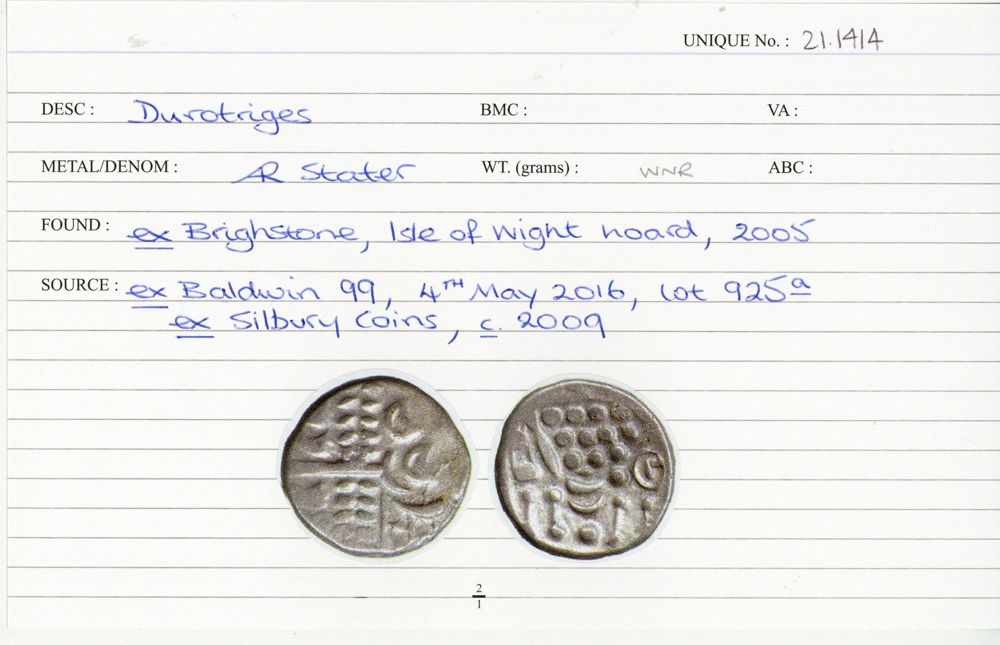 UNIQUE No. : 21.1414
DESC : Durotriges BMC : VA :
METAL/DENOM : AR Stater WT. (grams) : WNR ABC :
FOUND : ex Brighstone, Isle of Wight hoard, 2005
SOURCE : ex Baldwin 99, 4TH May 2016, lot 925a
ex Silbury Coins, c. 2009
2
1